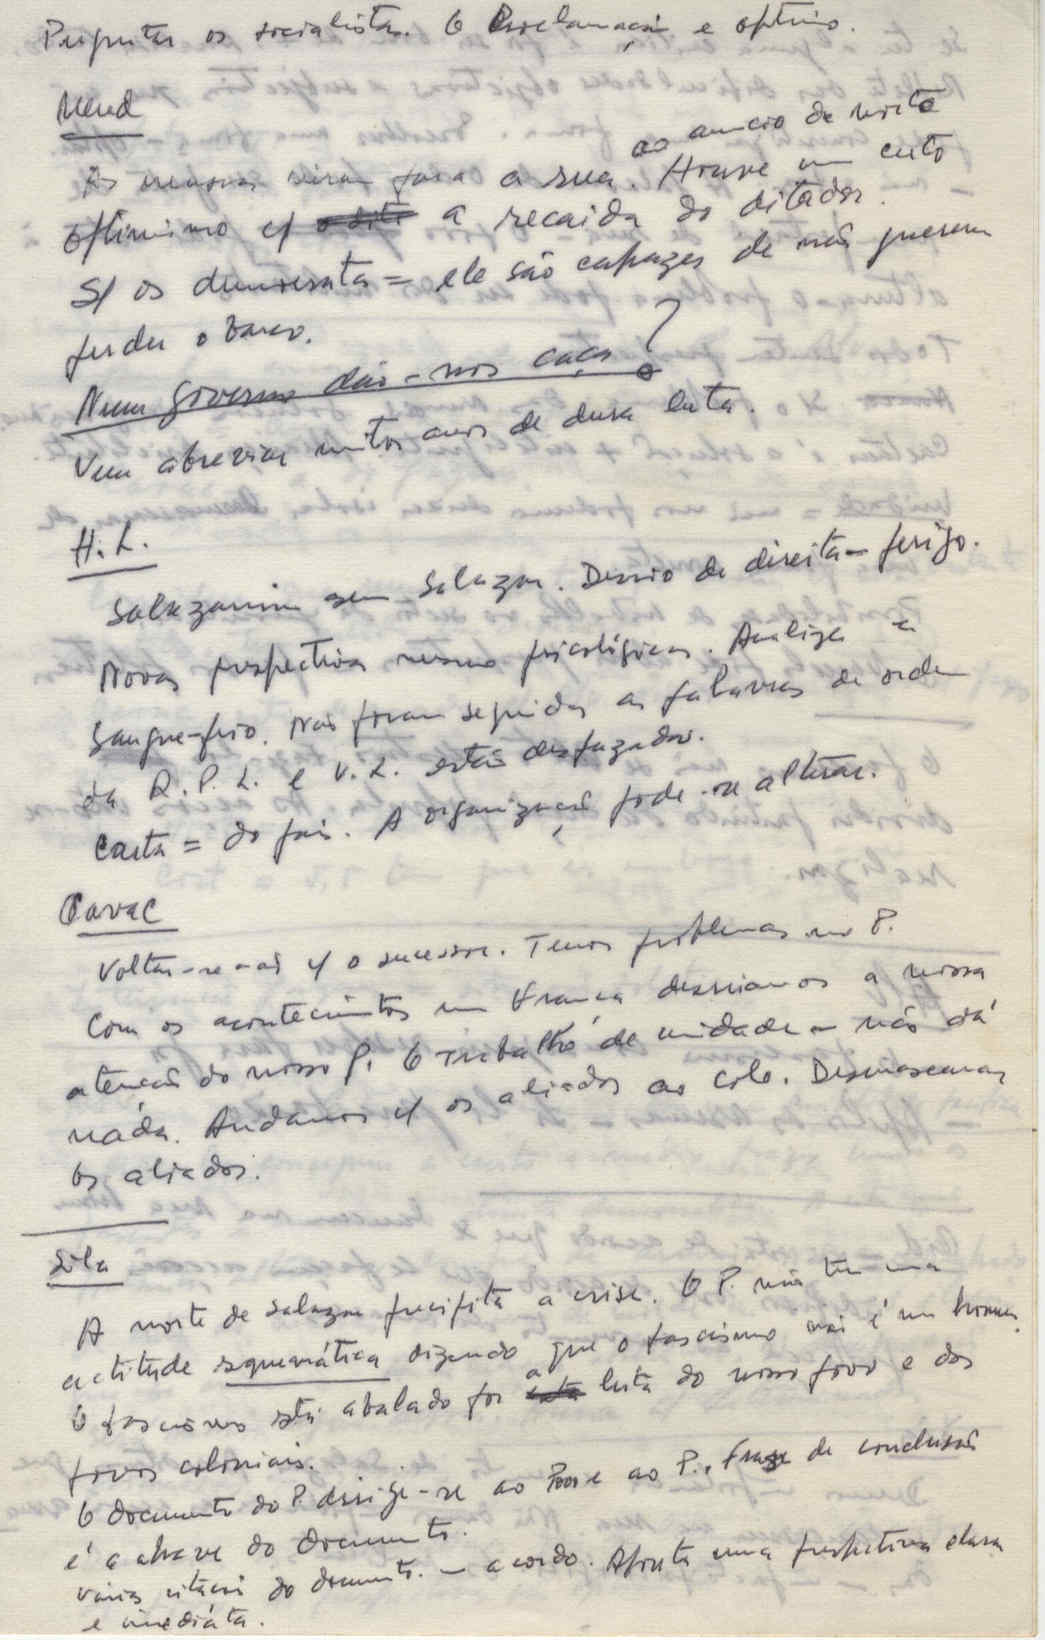 Perguntar os socialistas. O Proclamação é optimo.
Mend
As massas vieram para a rua. ao anuncio da morte Houve um certo
optimismo c/ a recaida do ditador.
S/ os democratas = eles são capazes de não querem
perder o barco.
Num governo dão-nos caça?
Vem abreviar muitos anos de dura luta.
H. L.
Salazarismo sem Salazar. Desvio de direita - perigo.
Novas perspectivas mesmo psicológicas. Analizar a
sangue-frio. Não foram seguidas as palavras de ordem
da R. P. L. e V. L. estão desfazados.
Carta = do país. A organização pode-a alterar.
Pavel
Voltar-se-ão c/ o sucessor. Temos problemas no P.
Com os acontecimentos em França desviamos a nossa
atenção do nosso P. O trabalho de unidade - não dá
nada. Andamos c/ os aliados ao colo. Desmascarar
os aliados.
Sila
A morte de Salazar precipita a crise. O P. não tem uma
actitude esquemática dizendo que o fascismo não é um homem.
O fascismo está abalado por a luta do nosso povo e dos
povos coloniais.
O documento do P. dirige-se ao Povo e ao P. Frase de conclusão
é a chave do documento.
Várias citações do documento. - acordo. Aponta uma perspectiva clara
e imediata.